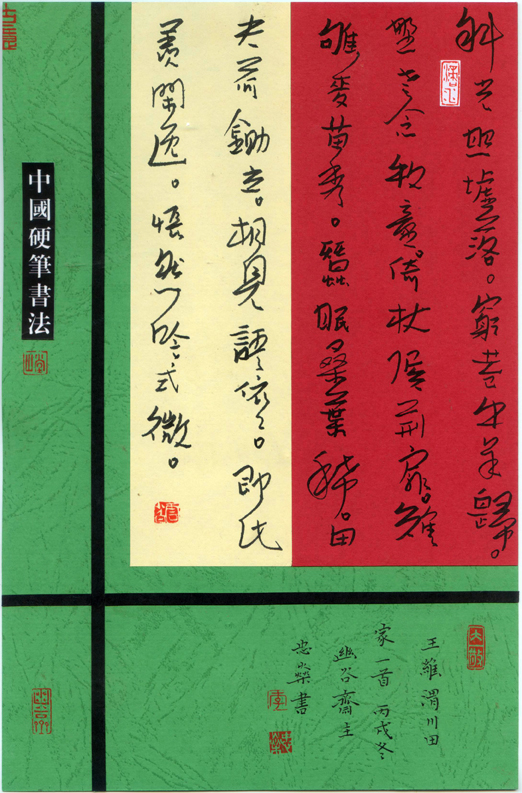 斜光照墟落。窮巷牛羊歸。
野老念牧童。倚杖候荊扉。雉
雊麥苗秀。蠶眠桑葉稀。田
夫荷鋤立。相見語依依。即此
羨閒逸。悵然吟式微。
中國硬筆書法
王維渭川田
家一首 丙戌冬
幽谷齋主
忠榮書